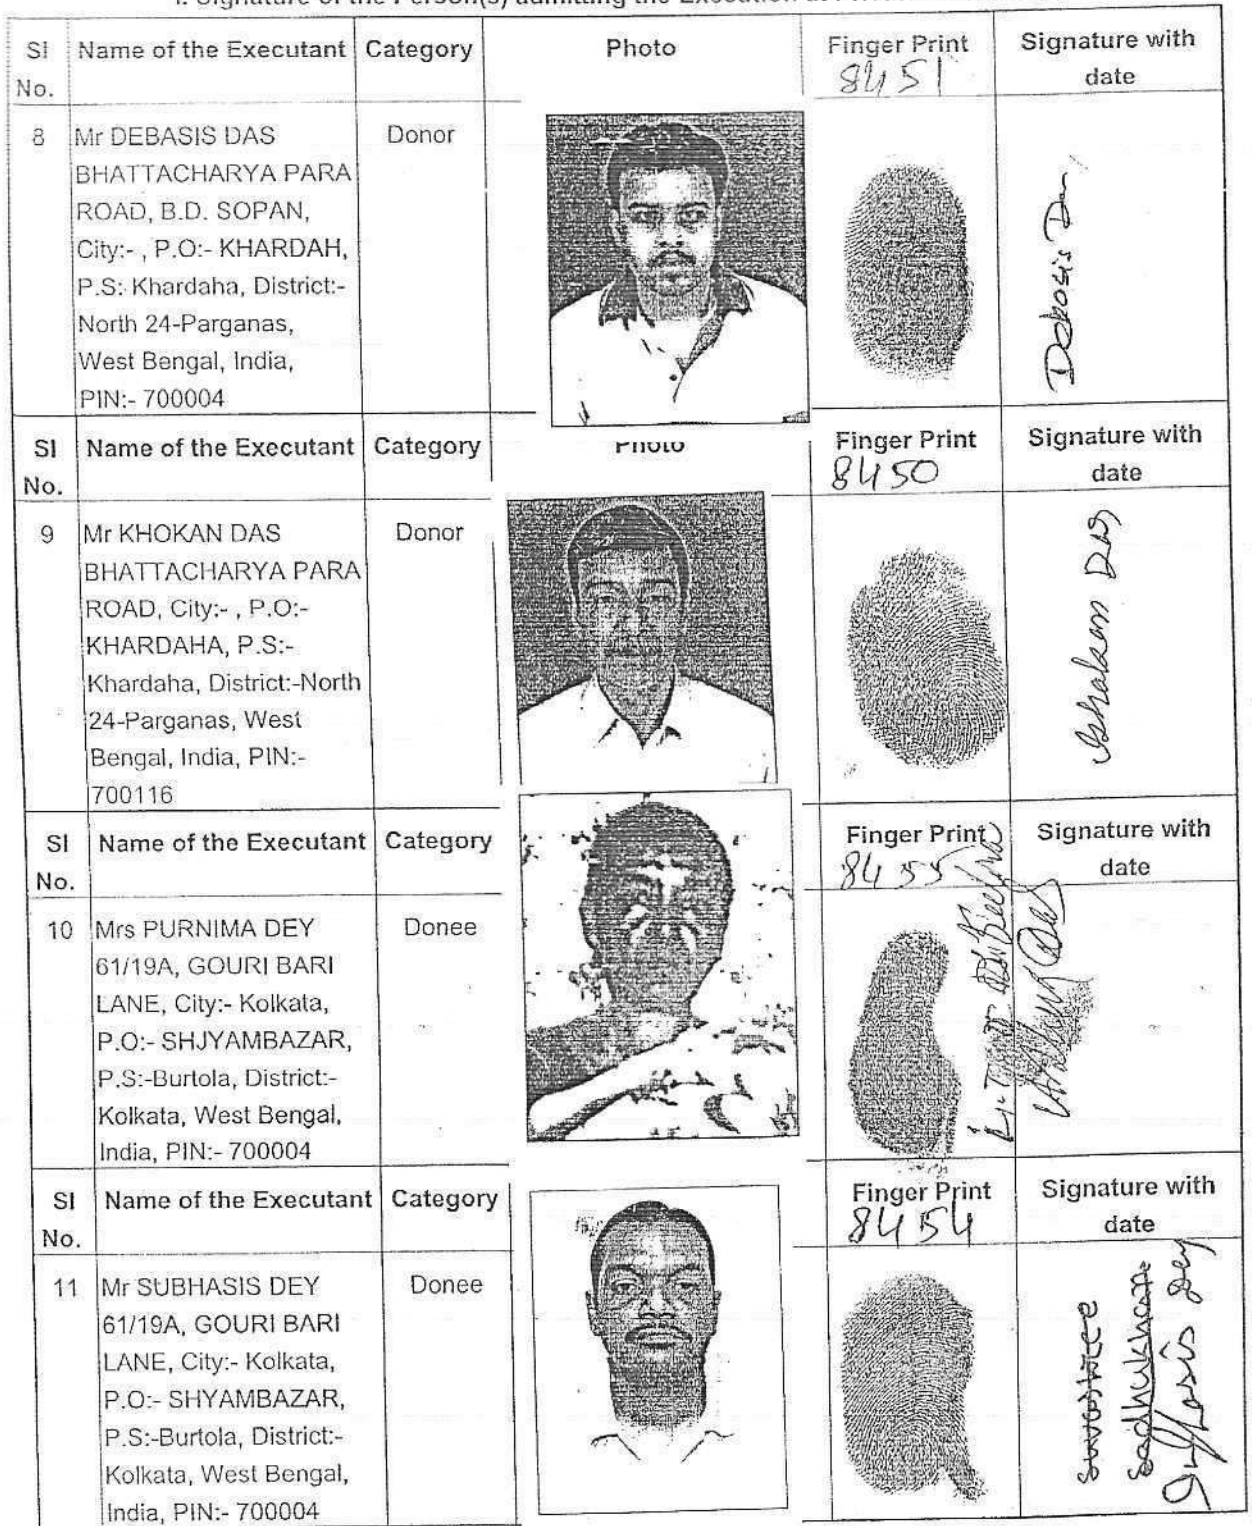 I. Signature of the Person(s) admitting the Execution at
Sl Name of the Executant Category Photo Finger Print Signature with
No. 8451 date
8 Mr DEBASIS DAS Donor
BHATTACHARYA PARA
ROAD, B.D. SOPAN,
City:- , P.O:- KHARDAH,
P.S: Khardaha, District:-
North 24-Parganas,
West Bengal, India,
PIN:- 700004
Debasis Das
Sl Name of the Executant Category Photo Finger Print Signature with
No. 8450 date
9 Mr KHOKAN DAS Donor
BHATTACHARYA PARA
ROAD, City:- , P.O:-
KHARDAHA, P.S:-
Khardaha, District:-North
24-Parganas, West
Bengal, India, PIN:-
700116
Khokan Das
Sl Name of the Executant Category Finger Print Signature with
No. 8455 date
10 Mrs PURNIMA DEY Donee
61/19A, GOURI BARI
LANE, City:- Kolkata,
P.O:- SHJYAMBAZAR,
P.S:-Burtola, District:-
Kolkata, West Bengal,
India, PIN:- 700004
Sl Name of the Executant Category Finger Print Signature with
No. 8454 date
11 Mr SUBHASIS DEY Donee
61/19A, GOURI BARI
LANE, City:- Kolkata,
P.O:- SHYAMBAZAR,
P.S:-Burtola, District:-
Kolkata, West Bengal,
India, PIN:- 700004
Sadhukhan
Subhasis Dey